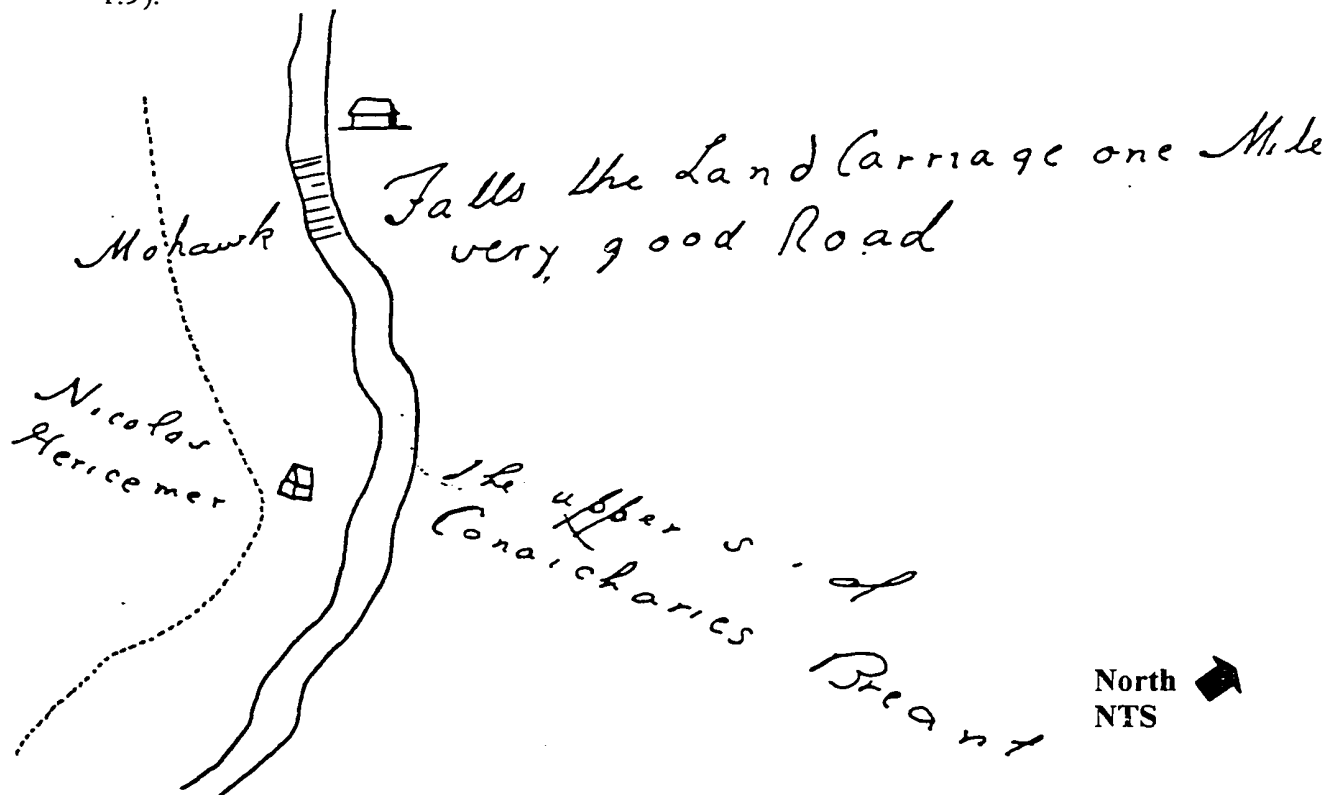 Falls the Land Carriage one Mile
very good Road
Mohawk
Nicolas
Hericemer
the upper s. of
Conaicharies Breant
North
NTS